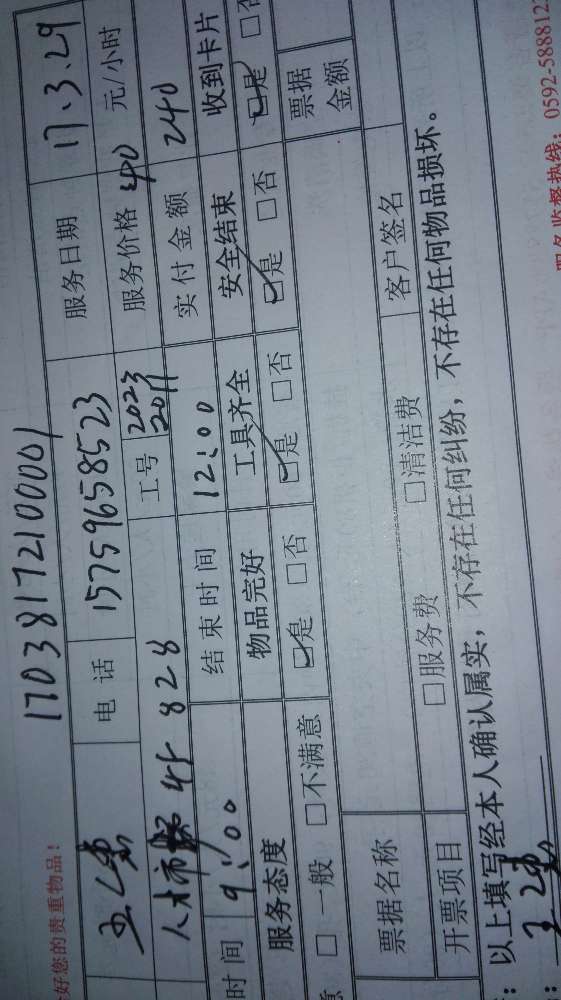 17038172100001
好您的贵重物品!
电话 15759658523 服务日期 17.3.29
828 工号 2023 2011 服务价格 40 元/小时
时间 9:00 结束时间 12:00 实付金额 240
服务态度 物品完好 工具齐全 安全结束 收到卡片
意 □一般 □不满意 ☑是 □否 ☑是 □否 ☑是 □否 ☑是 □否
票据名称 票据金额
开票项目 □服务费 □清洁费 客户签名
:以上填写经本人确认属实,不存在任何纠纷,不存在任何物品损坏。
服务监督热线:0592-5888812